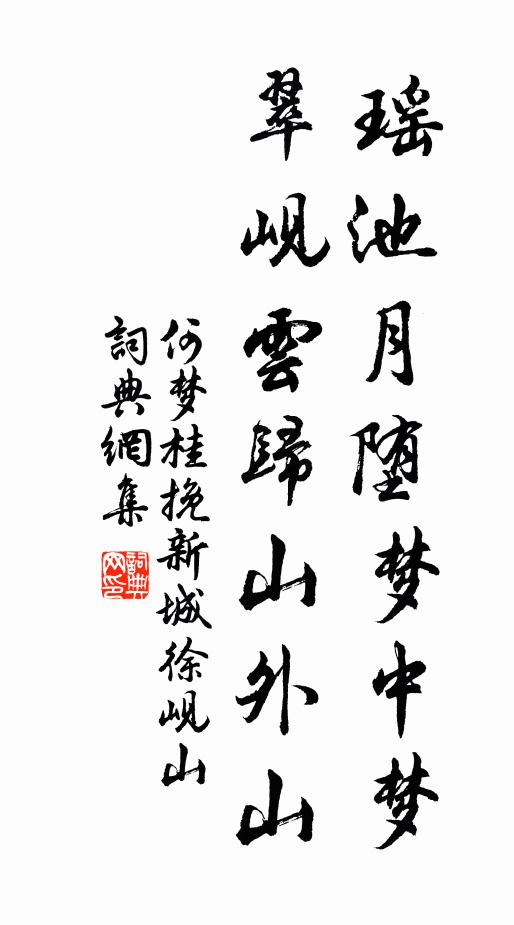 瑶池月堕梦中梦
翠峴雲歸山外山
何梦桂挽新城徐峴山
詞典網集
詞典網印